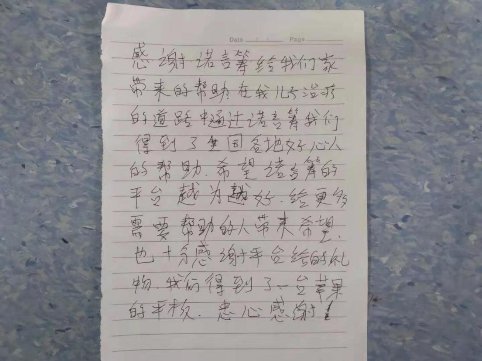 Date   /   /   Page
感谢诺言筹给我们家
带来的帮助.在我儿治疗
的道路中通过诺言筹我们
得到了全国各地好心人
的帮助.希望诺言筹的
平台越为越好.给更多
需要帮助的人带来希望.
也十分感谢平台给的礼
物.我们得到了一台苹果
的平板.忠心感谢!